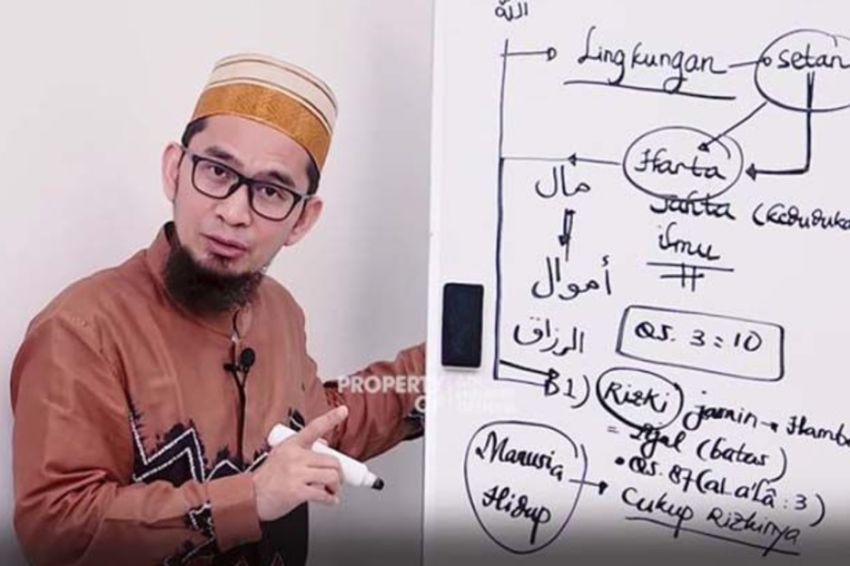 الله
Lingkungan setan
Harta
مال Jahta (Keduduka
ilmu
أموال
الرزاق QS. 3 = 10
1) Rizki jamin Hamba
= Ajal (batas)
Manusia • QS. 87 (al a'lâ : 3)
Hidup Cukup Rizkinya
PROPERTY